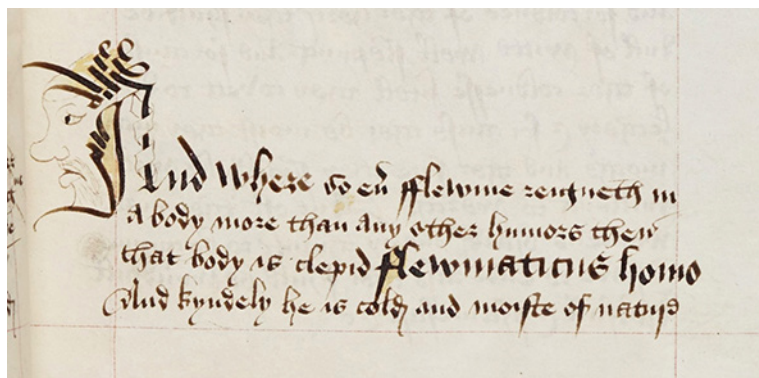 And where so eu̅ fflewme reigneth in
a body more than any other humors then
that body is clepid flewmaticus homo
And kyndely he is cold and moiste of nature